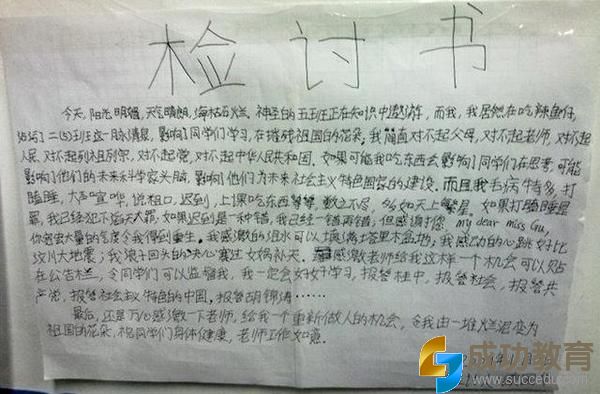 检讨书
今天，阳光明媚，天气晴朗，海枯石烂，神圣的五班正在知识中遨游，而我，我居然在吃辣鱼仔，
二(5)班这一脉清泉，影响同学们学习，在摧残祖国的花朵，我简直对不起父母，对不起老师，对不起
人民，对不起列祖列宗，对不起党，对不起中华人民共和国，如果可能我吃东西会影响同学们在思考，可能
影响他们的未来科学家头脑，影响他们为未来社会主义特色国家的建设。而且我毛病特多，打
瞌睡，大声喧哗，说粗口，迟到，上课吃东西等等，数之不尽，多如天上繁星。如果打瞌睡是
罪，我已经犯下滔天大罪；如果迟到是一种错，我已经一错再错；但感谢您，my dear miss Gu，
你宽宏大量的气度令我得到重生。我感激的泪水可以填满塔里木盆地，我感动的心跳好比
汶川大地震；我浪子回头的决心赛过女娲补天。感激老师给我这样一个机会可以贴
在公告栏，令同学们可以监督我，我一定会好好学习，报答桂中，报答社会，报答共
产党，报答社会主义特色的中国，报答胡锦涛……
最后，还是万分感激一下老师，给我一个重新做人的机会，令我由一堆烂泥变为
祖国的花朵，祝同学们身体健康，老师工作如意。
成功教育
www.succedu.com